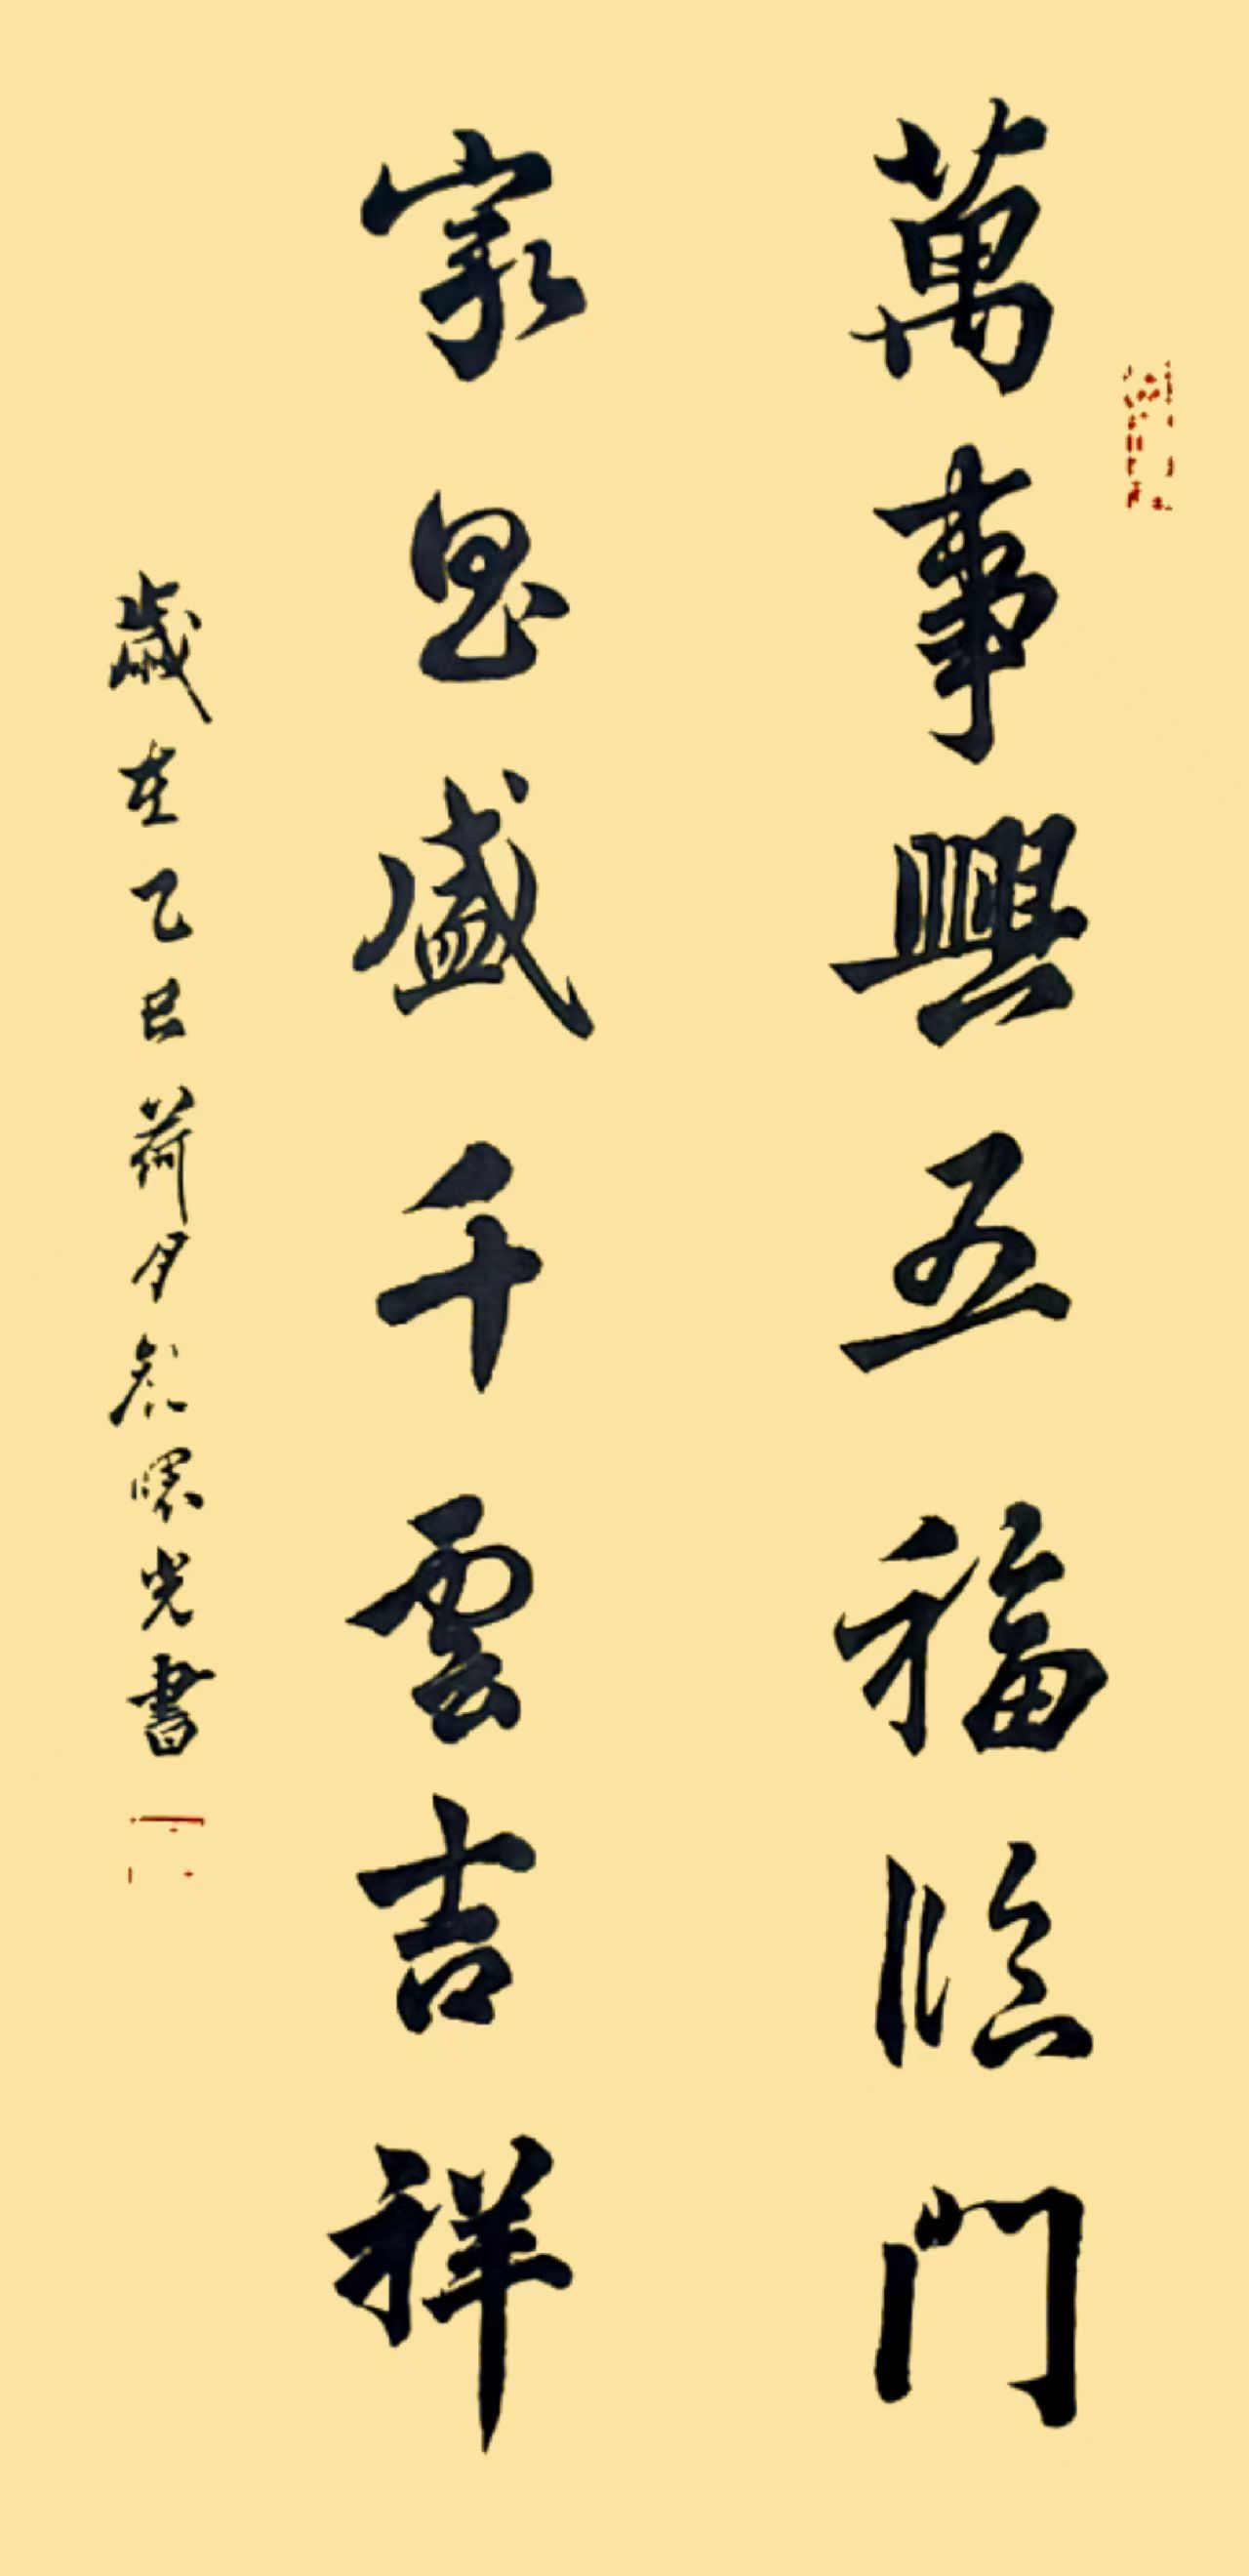 萬事興五福臨門
家昌盛千雲吉祥
歲在乙巳荷月光書